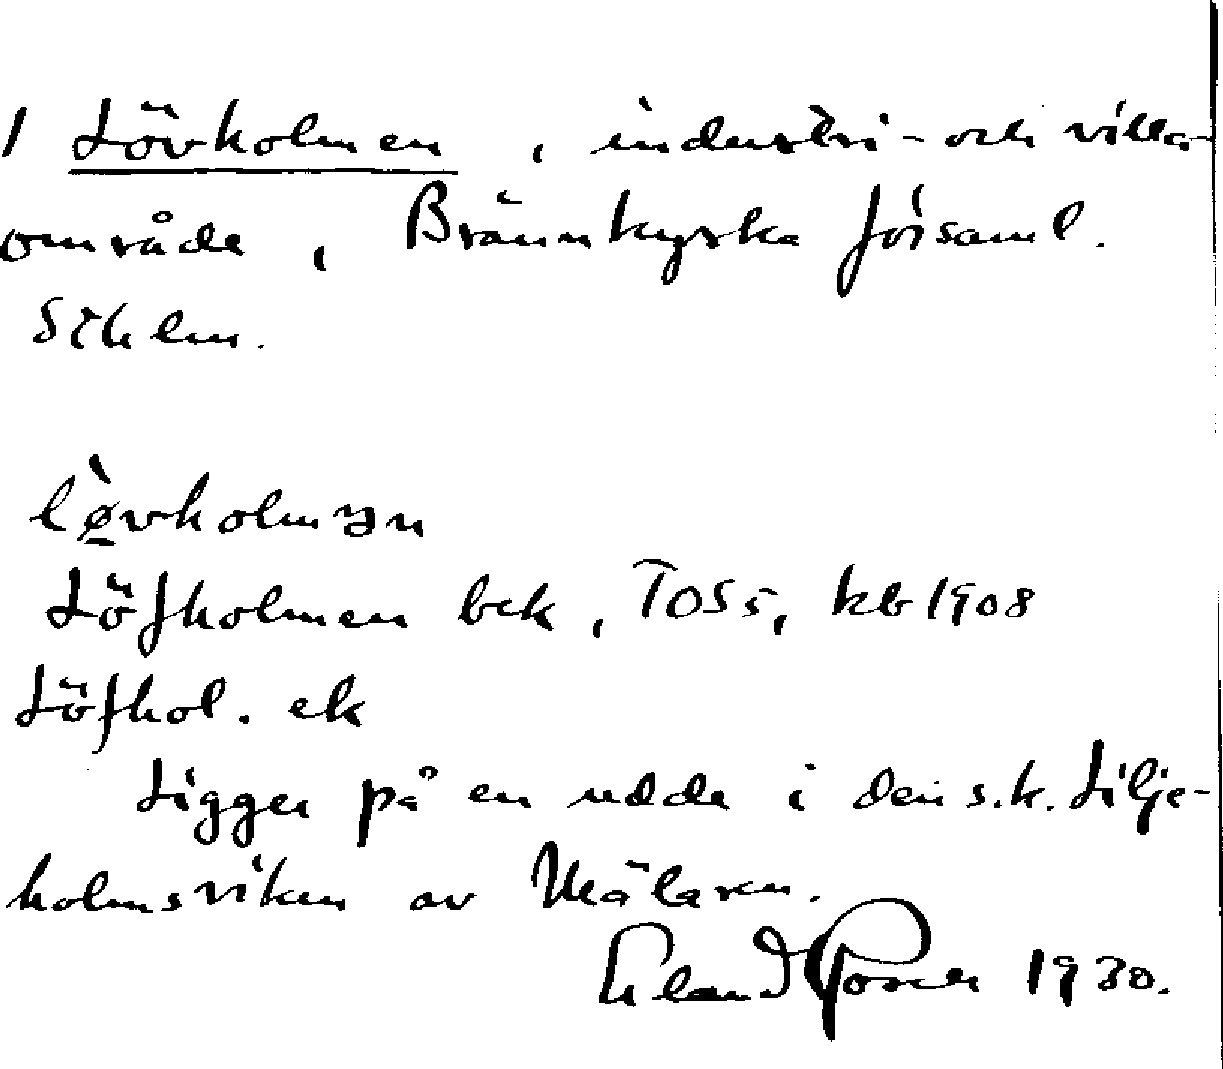 1 Lövholmen, industri- och villa-
område, Brännkyrka församl.
Sthlm.
lø̀vholmən
Löfholmen bek, TOS 5, kb 1908
Löfhol. ek
Ligger på en udde i den s.k. Lilje-
holmsviken av Mälaren.
Erland Rosell 1930.